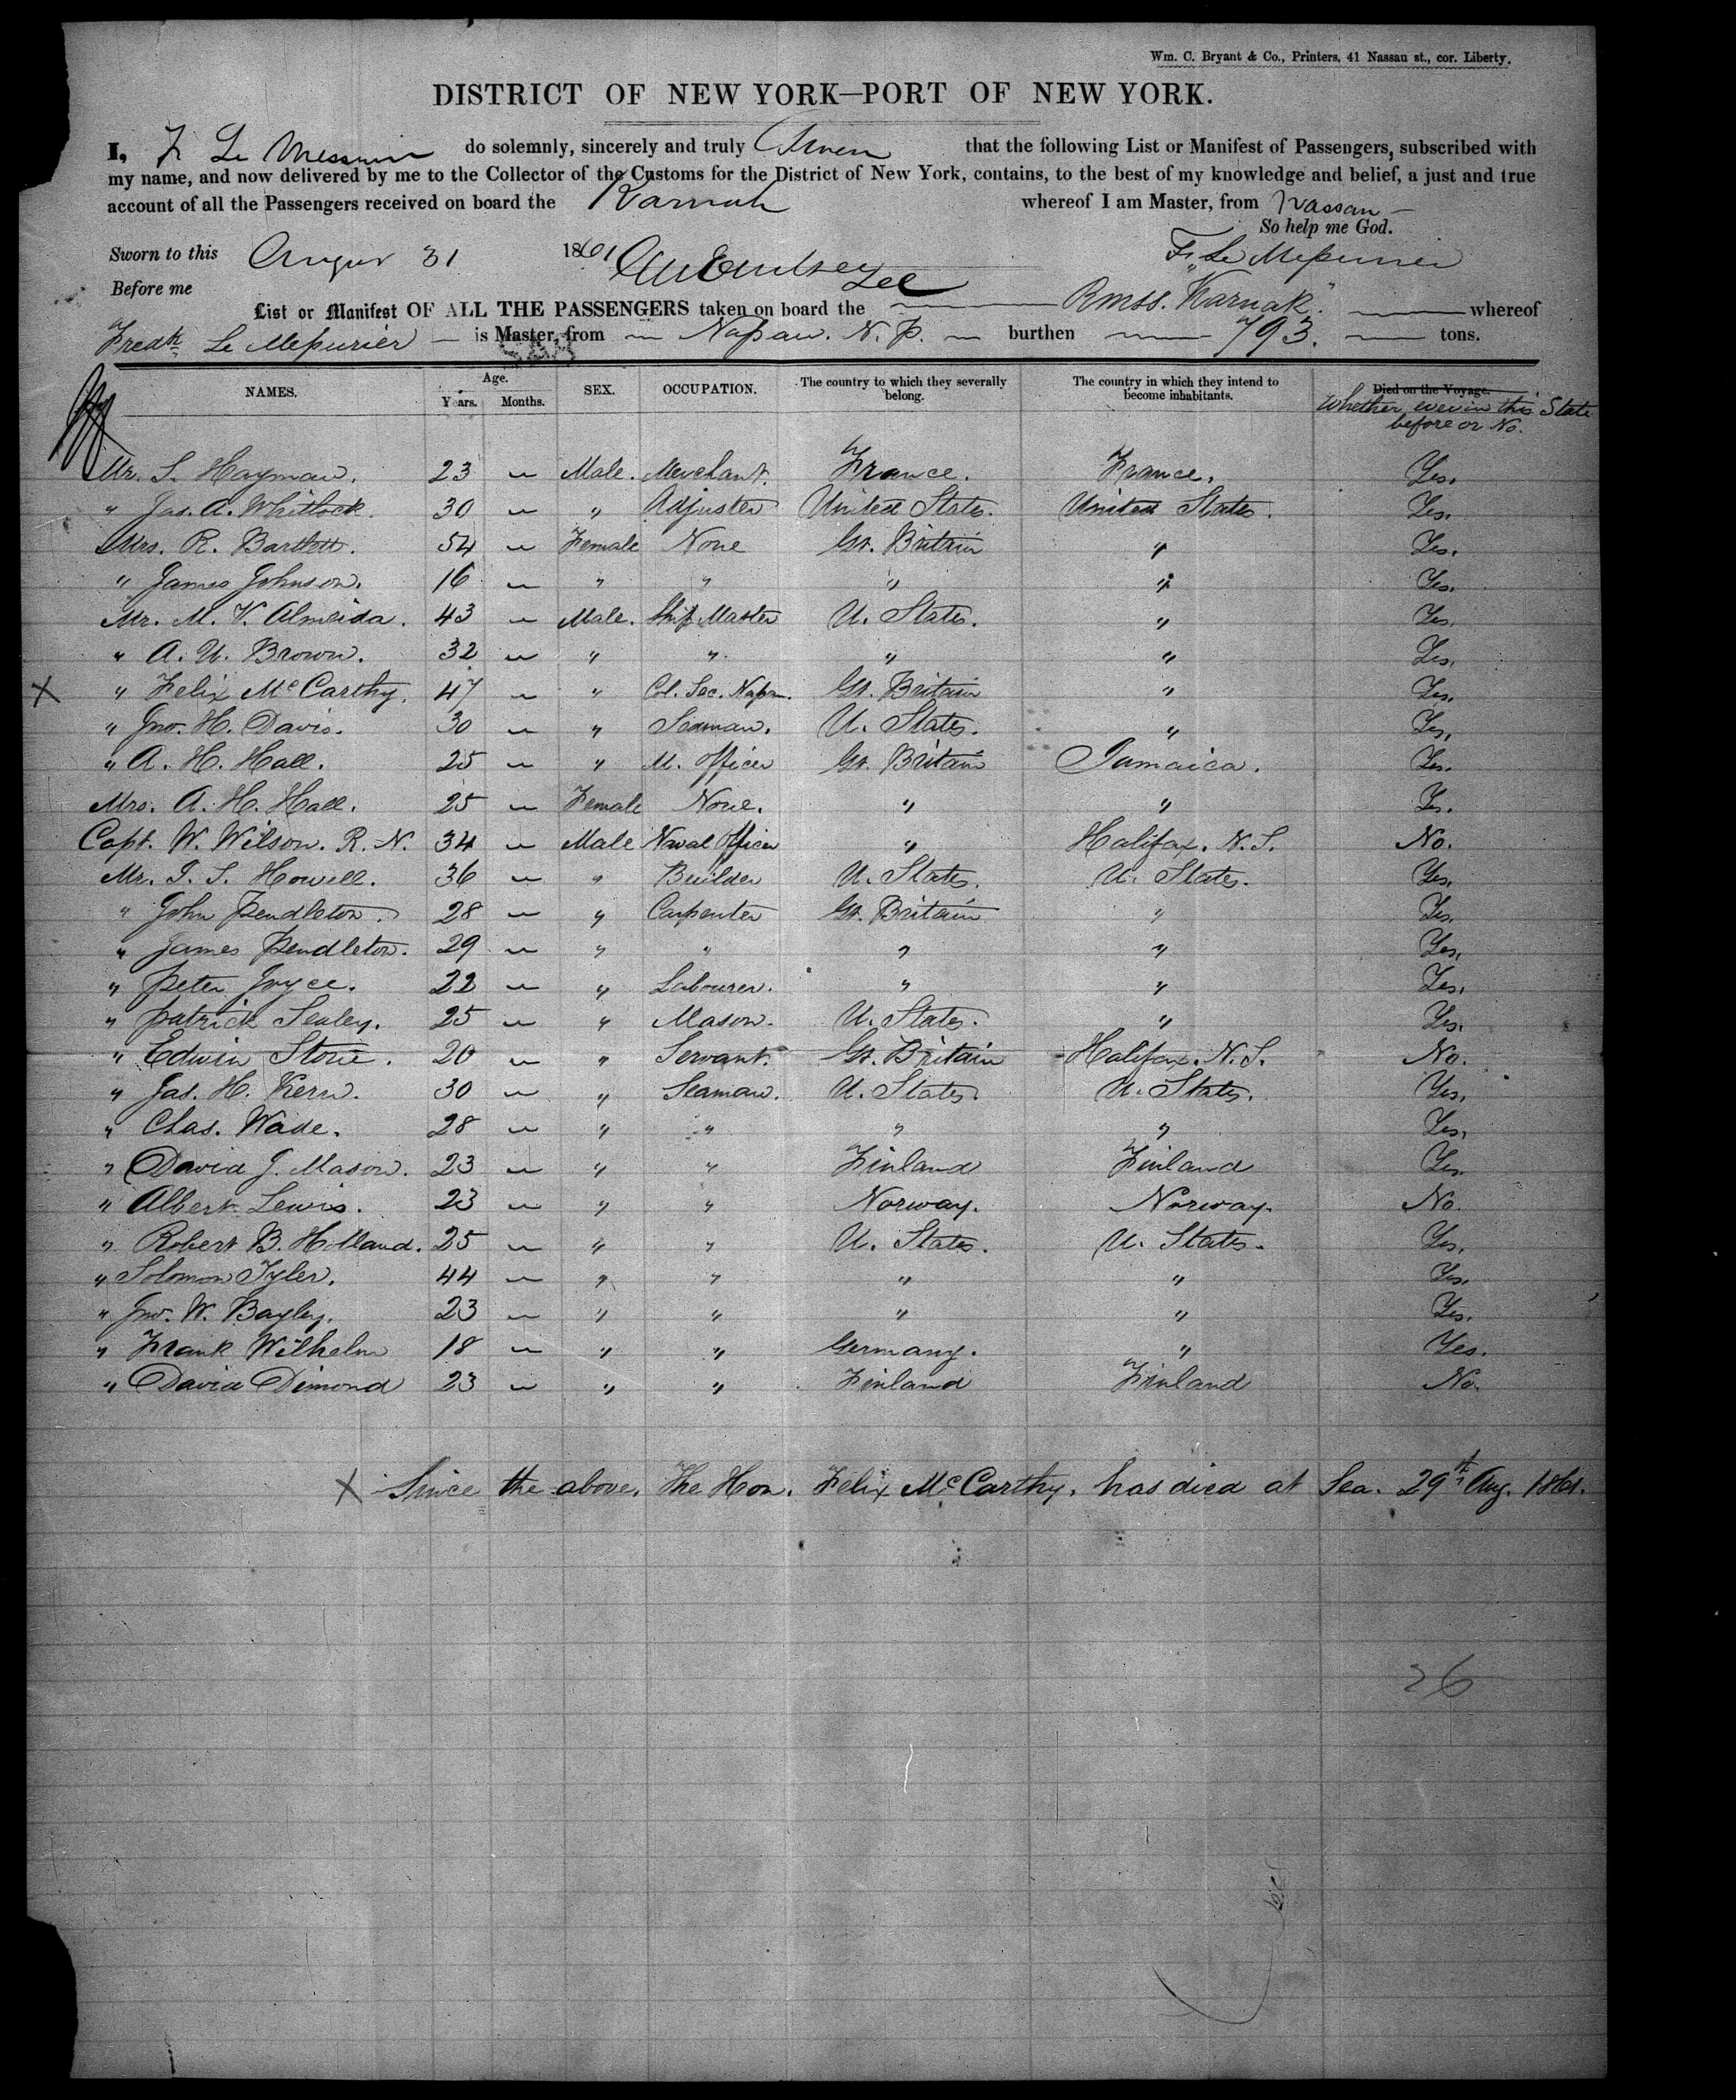 Wm. C. Bryant & Co., Printers, 41 Nassau st., cor. Liberty.
DISTRICT OF NEW YORK—PORT OF NEW YORK.
I, F Le Messurier do solemnly, sincerely and truly Swear that the following List or Manifest of Passengers, subscribed with
my name, and now delivered by me to the Collector of the Customs for the District of New York, contains, to the best of my knowledge and belief, a just and true
account of all the Passengers received on board the Karnak whereof I am Master, from Nassau —
So help me God.
Sworn to this August 31 1861 F. Le Messurier
Before me
List or Manifest OF ALL THE PASSENGERS taken on board the Rmss. "Karnak". whereof
Fredk Le Messurier is Master, from Nassau. N. P. burthen 793. tons.
NAMES. Age. Years. Months. SEX. OCCUPATION. The country to which they severally belong. The country in which they intend to become inhabitants. Died on the Voyage.
Whether ever in this State
before or No.
Mr. S. Hayman. 23 " Male. Merchant. France. France. Yes.
" Jas. A. Whitlock. 30 " " Adjuster United States. United States. Yes.
Mrs. R. Bartlett. 54 " Female None Gt. Britain " Yes.
" James Johnson. 16 " " " " " Yes.
Mr. M. V. Almeida. 43 " Male. Ship Master U. States. " Yes.
" A. U. Brown. 32 " " " " " Yes.
X " Felix McCarthy. 47 " " Col. Sec. Nassau. Gt. Britain " Yes.
" Jno. H. Davis. 30 " " Seaman. U. States. " Yes.
" A. H. Hall. 25 " " M. Officer Gt. Britain Jamaica. Yes.
Mrs. A. H. Hall. 25 " Female None. " " Yes.
Capt. W. Wilson. R. N. 34 " Male Naval Officer " Halifax. N. S. No.
Mr. I. S. Howell. 36 " " Builder U. States. U. States. Yes.
" John Pendleton. 28 " " Carpenter Gt. Britain " Yes.
" James Pendleton. 29 " " " " " Yes.
" Peter Joyce. 22 " " Labourer. " " Yes.
" Patrick Sealey. 25 " " Mason. U. States. " Yes.
" Edwin Stone. 20 " " Servant. Gt. Britain Halifax. N. S. No.
" Jas. H. Kern. 30 " " Seaman. U. States. U. States. Yes.
" Chas. Wade. 28 " " " " " Yes.
" David J. Mason. 23 " " " Finland Finland Yes.
" Albert Lewis. 23 " " " Norway. Norway. No.
" Robert B. Holland. 25 " " " U. States. U. States. Yes.
" Solomon Tyler. 44 " " " " " Yes.
" Jno. W. Bayley. 23 " " " " " Yes.
" Frank Wilhelm 18 " " " Germany. " Yes.
" David Dimond 23 " " " Finland Finland No.
X Since the above, The Hon. Felix McCarthy. has died at Sea. 29th Aug. 1861.
26